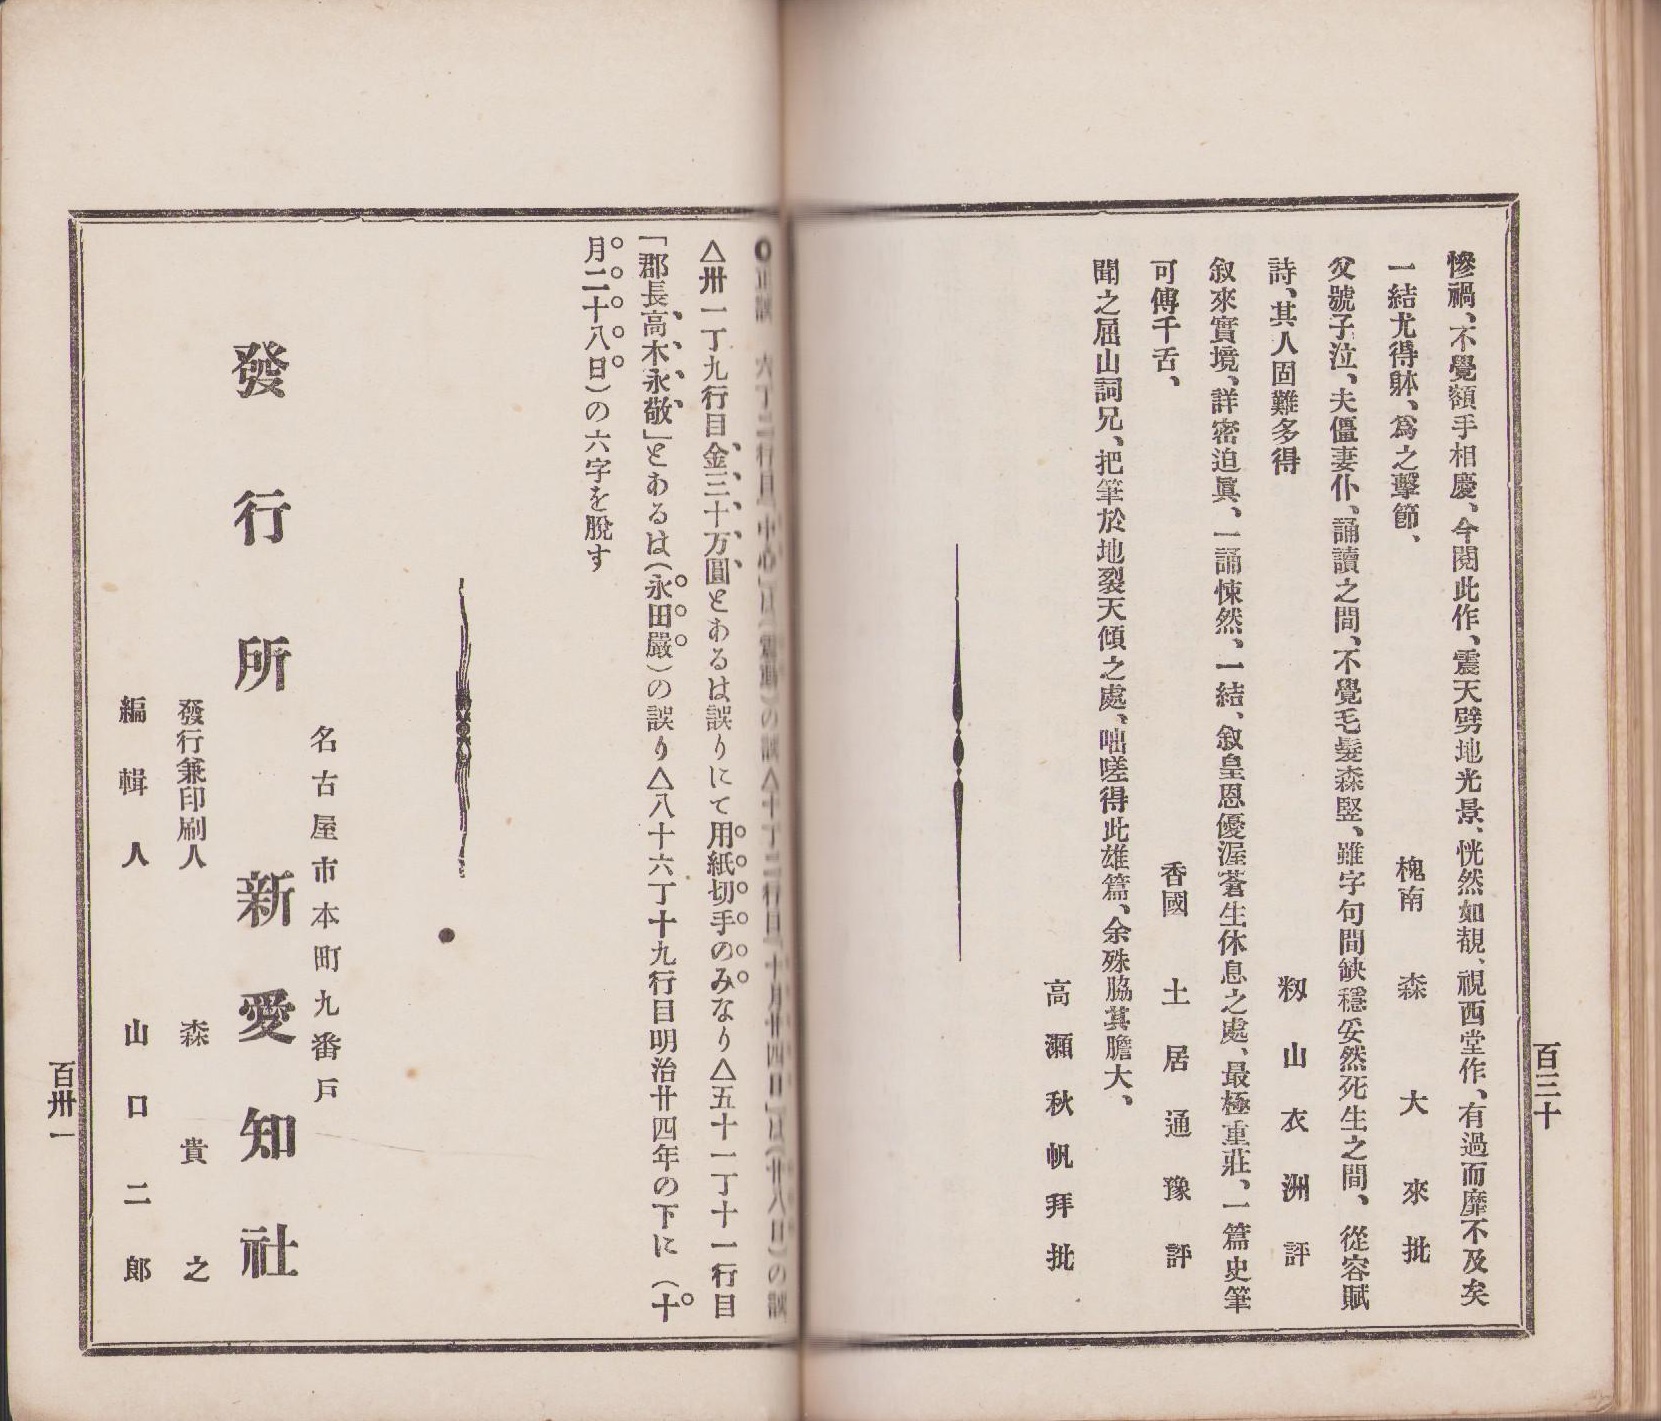 慘禍、不覺額手相慶、今閱此作、震天劈地光景、恍然如覩、視西堂作、有過而靡不及矣
一結尤得躰、爲之擊節、
槐南 森 大來批
父號子泣、夫僵妻仆、誦讀之間、不覺毛髮森竪、雖字句間缺穩妥然死生之間、從容賦
詩、其人固難多得
籾山衣洲評
叙來實境、詳密迫眞、一誦悚然、一結、叙皇恩優渥蒼生休息之處、最極重莊、一篇史筆
可傳千舌、
香國 土居通豫評
聞之屈山詞兄、把筆於地裂天傾之處、咄嗟得此雄篇、余殊脇其膽大、
高瀨秋帆拜批
百三十
六丁二行目「中心」は の誤△十丁二行目「十月廿四日」は(廿八日)の誤
△卅一丁九行目金三十万圓とあるは誤りにて用紙切手のみなり△五十一丁十一行目
「郡長高木永敬」とあるは(永田嚴)の誤り△八十六丁十九行目明治廿四年の下に(十
月二十八日)の六字を脫す
名古屋市本町九番戸
發行所 新愛知社
發行兼印刷人 森貴之
編輯人 山口二郎
百卅一